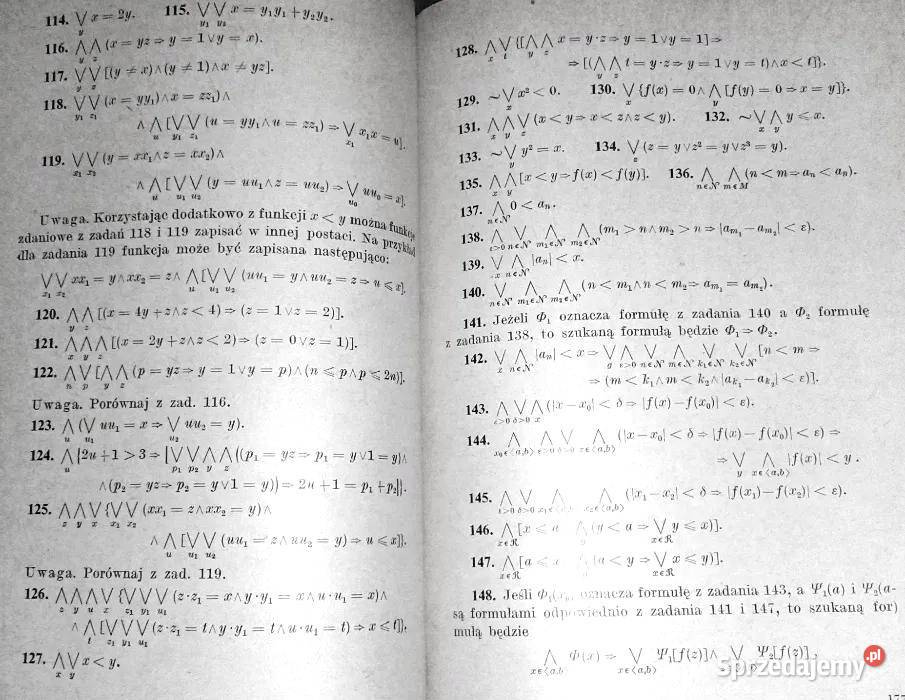 114. ⋁_y x = 2y. 115. ⋁_{y₁} ⋁_{y₂} x = y₁y₁ + y₂y₂.
116. ⋀_y ⋀_z (x = yz ⇒ y = 1 ∨ y = x).
117. ⋁_y ⋁_z [(y ≠ x) ∧ (y ≠ 1) ∧ x ≠ yz].
118. ⋁_{y₁} ⋁_{z₁} (x = yy₁) ∧ x = zz₁) ∧
∧ ⋀_u [⋁_{y₁} ⋁_{z₁} (u = yy₁ ∧ u = zz₁) ⇒ ⋁_{x₁} x₁x = u].
119. ⋁_{x₁} ⋁_{x₂} (y = xx₁ ∧ z = xx₂) ∧
∧ ⋀_u [⋁_{u₁} ⋁_{u₂} (y = uu₁ ∧ z = uu₂) ⇒ ⋁_{u₀} uu₀ = x].
Uwaga. Korzystając dodatkowo z funkcji x < y można funkcje
zdaniowe z zadań 118 i 119 zapisać w innej postaci. Na przykład
dla zadania 119 funkcja może być zapisana następująco:
⋁_{x₁} ⋁_{x₂} xx₁ = y ∧ xx₂ = z ∧ ⋀_u [⋁_{u₁} ⋁_{u₂} (uu₁ = y ∧ uu₂ = z ⇒ u ⩽ x].
120. ⋀_y ⋀_z [(x = 4y + z ∧ z < 4) ⇒ (z = 1 ∨ z = 2)].
121. ⋀_x ⋀_y ⋀_z [(x = 2y + z ∧ z < 2) ⇒ (z = 0 ∨ z = 1)].
122. ⋀_n ⋁_p [⋀_y ⋀_z (p = yz ⇒ y = 1 ∨ y = p) ∧ (n ⩽ p ∧ p ⩽ 2n)].
Uwaga. Porównaj z zad. 116.
123. ⋀_u (⋁_{u₁} uu₁ = x ⇒ ⋁_{u₂} uu₂ = y).
124. ⋀_u {2u + 1 > 3 ⇒ [⋁_{p₁} ⋁_{p₂} ⋀_y ⋀_z ((p₁ = yz ⇒ p₁ = y ∨ 1 = y) ∧
∧ (p₂ = yz ⇒ p₂ = y ∨ 1 = y)) ⇒ 2u + 1 = p₁ + p₂]}.
125. ⋀_z ⋀_y ⋁_x {⋁_{x₁} ⋁_{x₂} (xx₁ = z ∧ xx₂ = y) ∧
∧ ⋀_u [⋁_{u₁} ⋁_{u₂} (uu₁ = z ∧ uu₂ = y) ⇒ u ⩽ x]}.
Uwaga. Porównaj z zad. 119.
126. ⋀_z ⋀_y ⋀_u ⋁_x {⋁_{z₁} ⋁_{y₁} ⋁_{u₁} (z·z₁ = x ∧ y·y₁ = x ∧ u·u₁ = x) ∧
∧ ⋀_t [⋁_{z₁} ⋁_{y₁} ⋁_{u₁} (z·z₁ = t ∧ y·y₁ = t ∧ u·u₁ = t) ⇒ x ⩽ t]}.
127. ⋀_x ⋁_y x < y.
128. ⋀_x ⋁_t {[⋀_y ⋀_z x = y·z ⇒ y = 1 ∨ y = 1] ⇒
⇒ [(⋀_y ⋀_z t = y·z ⇒ y = 1 ∨ y = t) ∧ x < t]}.
129. ∼⋁_x x² < 0. 130. ⋁_x {f(x) = 0 ∧ ⋀_y [f(y) = 0 ⇒ x = y]}.
131. ⋀_x ⋀_y ⋁_z (x < y ⇒ x < z ∧ z < y). 132. ∼⋁_x ⋀_y y ⩽ x.
133. ∼⋁_y y² = x. 134. ⋁_z (z = y ∨ z² = y ∨ z³ = y).
135. ⋀_x ⋀_y [x < y ⇒ f(x) < f(y)]. 136. ⋀_{n∈𝒩} ⋀_{m∈M} (n < m ⇒ aₙ < aₙ).
137. ⋀_{n∈𝒩} 0 < aₙ.
138. ⋀_{ε>0} ⋁_{n∈𝒩} ⋀_{m₁∈𝒩} ⋀_{m₂∈𝒩} (m₁ > n ∧ m₂ > n ⇒ |a_{m₁} − a_{m₂}| < ε).
139. ⋁_x ⋀_{n∈𝒩} |aₙ| < x.
140. ⋁_{n∈𝒩} ⋀_{m₁∈𝒩} ⋀_{m₂∈𝒩} (n < m₁ ∧ n < m₂ ⇒ a_{m₁} = a_{m₂}).
141. Jeżeli Φ₁ oznacza formułę z zadania 140 a Φ₂ formułę
z zadania 138, to szukaną formułą będzie Φ₁ ⇒ Φ₂.
142. ⋁_x ⋀_{n∈𝒩} |aₙ| < x ⇒ ⋁_g ⋀_{ε>0} ⋁_{n∈𝒩} ⋀_{m∈𝒩} ⋁_{k₁∈𝒩} ⋁_{k₂∈𝒩} [n < m ⇒
⇒ (m < k₁ ∧ m < k₂ ∧ |a_{k₁} − a_{k₂}| < ε)].
143. ⋀_{ε>0} ⋁_{δ>0} ⋀_x (|x − x₀| < δ ⇒ |f(x) − f(x₀)| < ε).
144. ⋀_{x₀∈⟨a,b⟩} ⋀_{ε>0} ⋁_{δ>0} ⋀_{x∈⟨a,b⟩} (|x − x₀| < δ ⇒ |f(x) − f(x₀)| < ε) ⇒
⇒ ⋁_y ⋀_{x∈⟨a,b⟩} |f(x)| < y.
145. ⋀_{ε>0} ⋁_{δ>0} ⋀_{x₁∈⟨a,b⟩} ⋀_{x₂∈⟨a,b⟩} (|x₁ − x₂| < δ ⇒ |f(x₁) − f(x₂)| < ε).
146. ⋀_{x∈ℛ} [x ⩽ a (y < a ⇒ ⋁_{x∈ℛ} y ⩽ x)].
147. ⋀_{x∈ℛ} [a ⩽ (a < y ⇒ ⋁_{x∈ℛ} x ⩽ y)].
148. Jeśli Φ₁(x₀ oznacza formułę z zadania 143, a Ψ₁(a) i Ψ₂(a-
są formułami odpowiednio z zadania 141 i 147, to szukaną for)
mułą będzie
⋀_{x∈⟨a,b} Φ(x) ⇒ ⋁_{x∈⟨a,b⟩} Ψ₁[f(z)] ∧ ⋁_{x∈⟨a,b⟩} Ψ₂[f(z)],
Sprzedajemy.pl
177